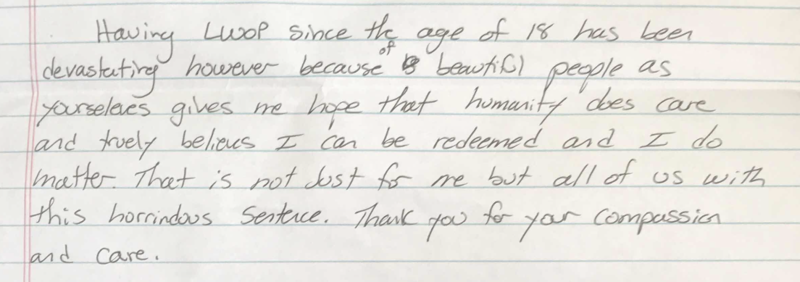 Having LWOP since the age of 18 has been
devastating however because of beautiful people as
yourseleves gives me hope that humanity does care
and truely believes I can be redeemed and I do
matter. That is not Just for me but all of us with
this horrindous Sentence. Thank you for your compassion
and care.